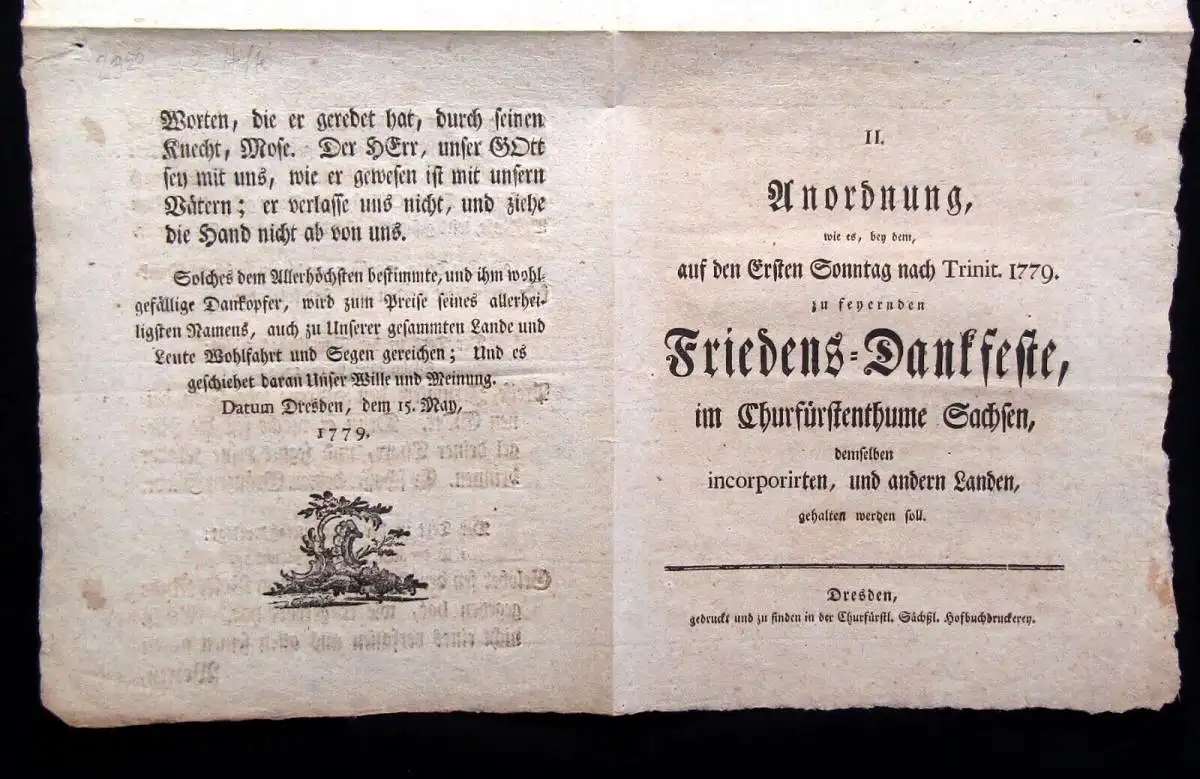 Worten, die er geredet hat, durch seinen
Knecht, Mose. Der HErr, unser GOtt
sey mit uns, wie er gewesen ist mit unsern
Vätern; er verlasse uns nicht, und ziehe
die Hand nicht ab von uns.
Solches dem Allerhöchsten bestimmte, und ihm wohl-
gefällige Dankopfer, wird zum Preise seines allerhei-
ligsten Namens, auch zu Unserer gesammten Lande und
Leute Wohlfahrt und Segen gereichen; Und es
geschiehet daran Unser Wille und Meinung.
Datum Dresden, dem 15. May,
1779.
II.
Anordnung,
wie es, bey dem,
auf den Ersten Sonntag nach Trinit. 1779.
zu feyernden
Friedens-Dankfeste,
im Churfürstenthume Sachsen,
demselben
incorporirten, und andern Landen,
gehalten werden soll.
Dresden,
gedruckt und zu finden in der Churfürstl. Sächßl. Hofbuchdruckerey.